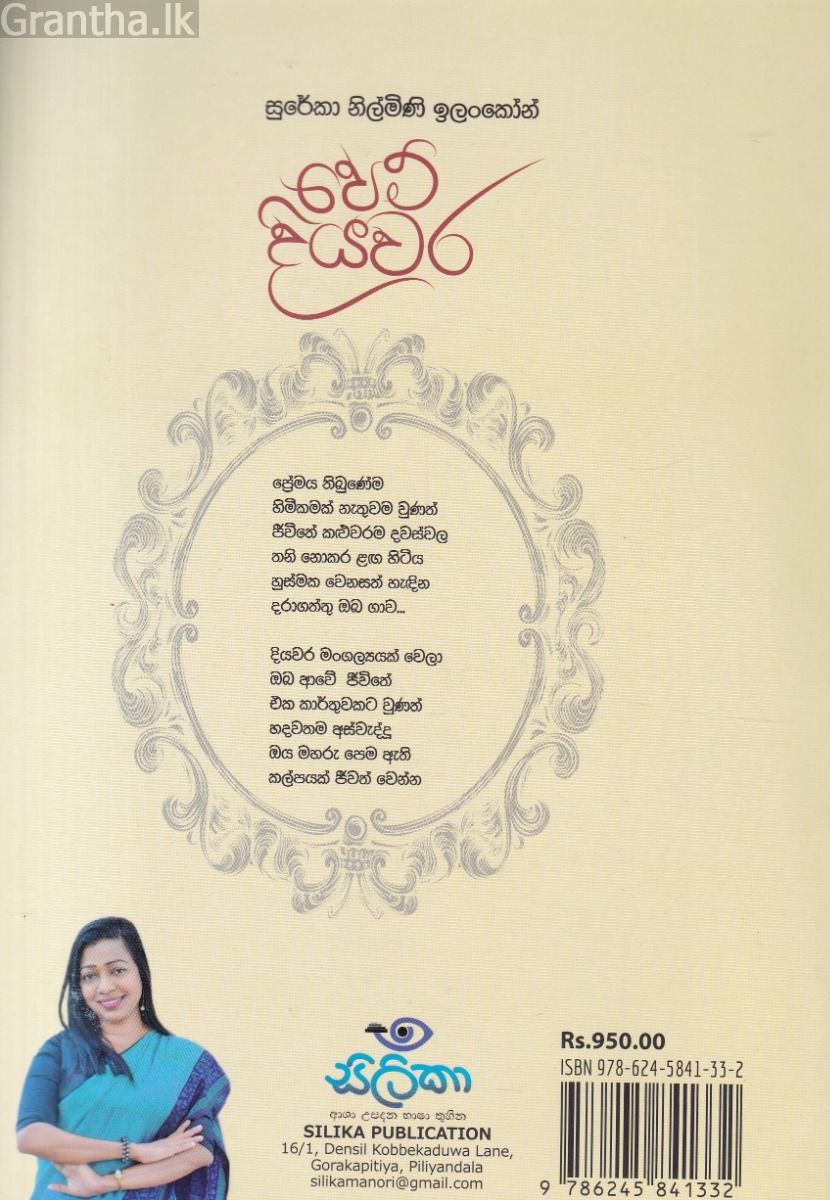 Grantha.lk
සුරේකා නිල්මිණි ඉලංකෝන්
පෙම්
දියවර
ප්‍රේමය තිබුණේම
හිමිකමක් නැතුවම වුණත්
ජීවිතේ කළුවරම දවස්වල
තනි නොකර ළඟ හිටිය
හුස්මක වෙනසත් හැඳින
දරාගත්තු ඔබ ගාව...
දියවර මංගල්‍යයක් වෙලා
ඔබ ආවේ ජීවිතේ
එක කාර්තුවකට වුණත්
හදවතම අස්වැද්දූ
ඔය මහරු පෙම ඇති
කල්පයක් ජීවත් වෙන්න
Rs.950.00
ISBN 978-624-5841-33-2
සිලිකා
ආශා උපදන භාෂා තුහින
SILIKA PUBLICATION
16/1, Densil Kobbekaduwa Lane,
Gorakapitiya, Piliyandala
silikamanori@gmail.com
9 786245 841332